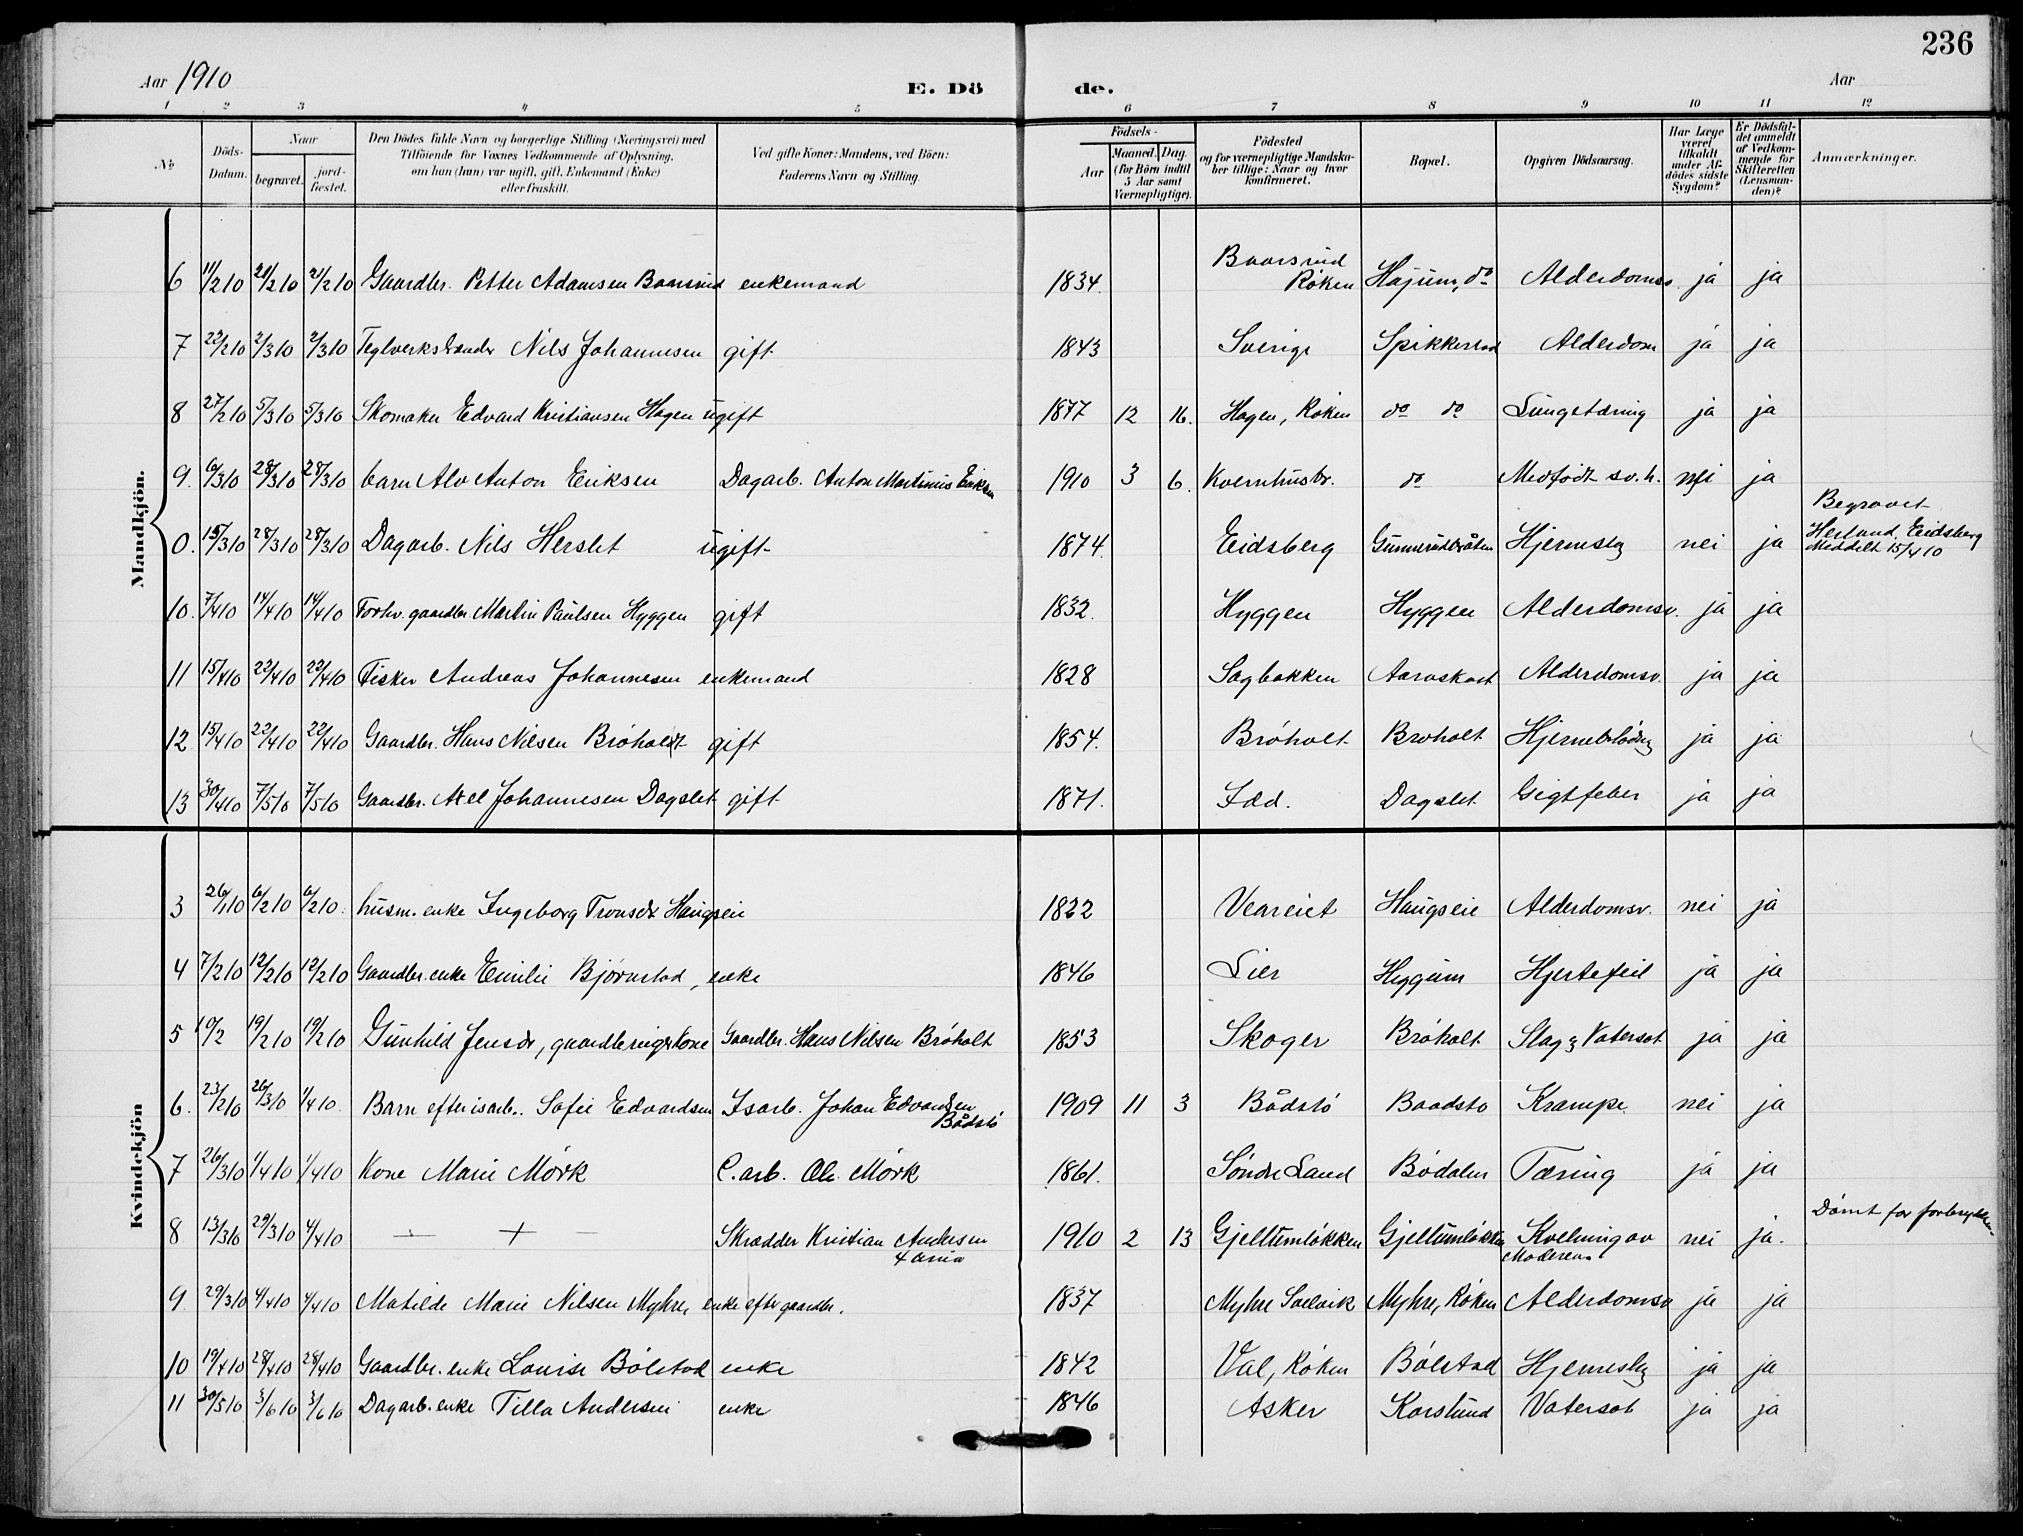 236
Aar 1910
E. Dö de.
Aar
1 2 3 4 5 6 7 8 9 10 11 12
No
Döds-Datum.
Naar
begravet.
jord-fæstet.
Den Dödes fulde Navn og borgerlige Stilling (Næringsvei) med
Tilföiende for Voxnes Vedkommende af Oplysning,
om han (hun) var ugift, gift, Enkemand (Enke)
eller fraskilt.
Ved gifte Koner: Mandens, ved Börn:
Faderens Navn og Stilling.
Födsels-
Aar
Maaned. Dag.
(for Börn indtil
5 Aar samt
Værnepligtige).
Födested
og for værnepligtige Mandska-
ber tillige: Naar og hvor
konfirmeret.
Bopæl.
Opgiven Dödsaarsag.
Har Læge
været
tilkaldt
under Af-
dödes sidste
Sygdom?
Er Dödsfal-
det anmeldt
af Vedkom-
mende for
Skifteretten
(Lensman-
den)?
Anmærkninger.
Mandkjön.
6 11/2 10 21/2 10 21/2 10 Gaardbr. Petter Adamsen Baarsrud enkemand 1834. Baarsrud Røken Højum, do Alderdomsv. ja ja
7 22/2 10 2/3 10 2/3 10 Teglverksbrænder Nils Johannesen gift 1843 Sverige Spikkestad Alderdom ja ja
8 27/2 10 5/3 10 5/3 10 Skomaker Edvard Kristiansen Hagen ugift 1877 12 16. Hagen, Røken do do Lungetæring ja ja
9. 6/3 10 28/3 10 28/3 10 barn Alv Anton Eriksen Dagarb. Anton Martinius Eriksen 1910 3 6. Kvernhusbr. do Medfødt sv.h. nei ja
0. 15/3 10 28/3 10 28/3 10 Dagarb. Nils Herslet ugift 1874. Eidsberg Gunnerudbråten Hjernesly nei ja Begravet Herland, Eidsberg Meddelt 15/4 10
10. 7/4 10 14/4 10 14/4 10 Forhv. gaardbr Martin Paulsen Hyggen gift 1832. Hyggen Hyggen Alderdomsv. ja ja
11 15/4 10 22/4 10 22/4 10 Fisker Andreas Johannesen enkemand 1828 Sagbakken Aaroskort Alderdomsv. ja ja
12 15/4 10 22/4 10 22/4 10 Gaardbr. Hans Nilsen Brøholdt gift 1854. Brøholt Brøholt Hjerneblødng ja ja
13 30/4 10 7/5 10 7/5 10 Gaardbr. Axel Johannesen Dagslet gift 1871. Idd. Dagslet Gigtfeber ja ja
Kvindekjön
3 26/1 10 6/2 10 6/2 10. husm. enke Ingeborg Tronsdr Haugseie 1822 Veareiet Haugseie Alderdomsv. nei ja
4 7/2 10 12/2 10 12/2 10 Gaardbr. enke Emilie Bjørnstad, enke 1846 Lier Heggum Hjertefeil ja ja
5 10/2 19/2 10 19/2 10 Gunhild Jensdr, gaardbrugerkone Gaardbr. Hans Nilsen Brøholt 1853 Skoger Brøholt Slag og Vatersot ja ja
6. 23/2 10 26/3 10 1/4 10. Barn efter isarb. Sofie Edvardsen Isarb. Johan Edvardsen Bådstø 1909 11 3 Bådstø Baadstø Krampe nei ja
7 26/3 10 1/4 10 1/4 10 Kone Marie Mörk C.arb. Ole Mörk 1861. Søndre Land Bødalen Tæring ja ja
8 13/3 10 29/3 10 4/4 10 — + — Skrædder Kristian Andersen 1910 2 13 Gjellumløkken Gjellumløkken Kvelning av Moderen nei ja. Dømt for forbrydelse
9. 29/3 10 4/4 10 4/4 10 Matilde Marie Nilsen Myhre, enke efter gaardbr. 1837 Myhre Svelvik Myhre, Røken Alderdomsv ja ja
10 19/4 10 28/4 10 28/4 10 Gaardbr. enke Louise Bølstad enke 1842 Val, Røken Bølstad Hjernesly ja ja
11 30/5 10 3/6 10 3/6 10 Dagarb. enke Tilla Andersen enke 1846 Asker Korslund Vatersot ja ja